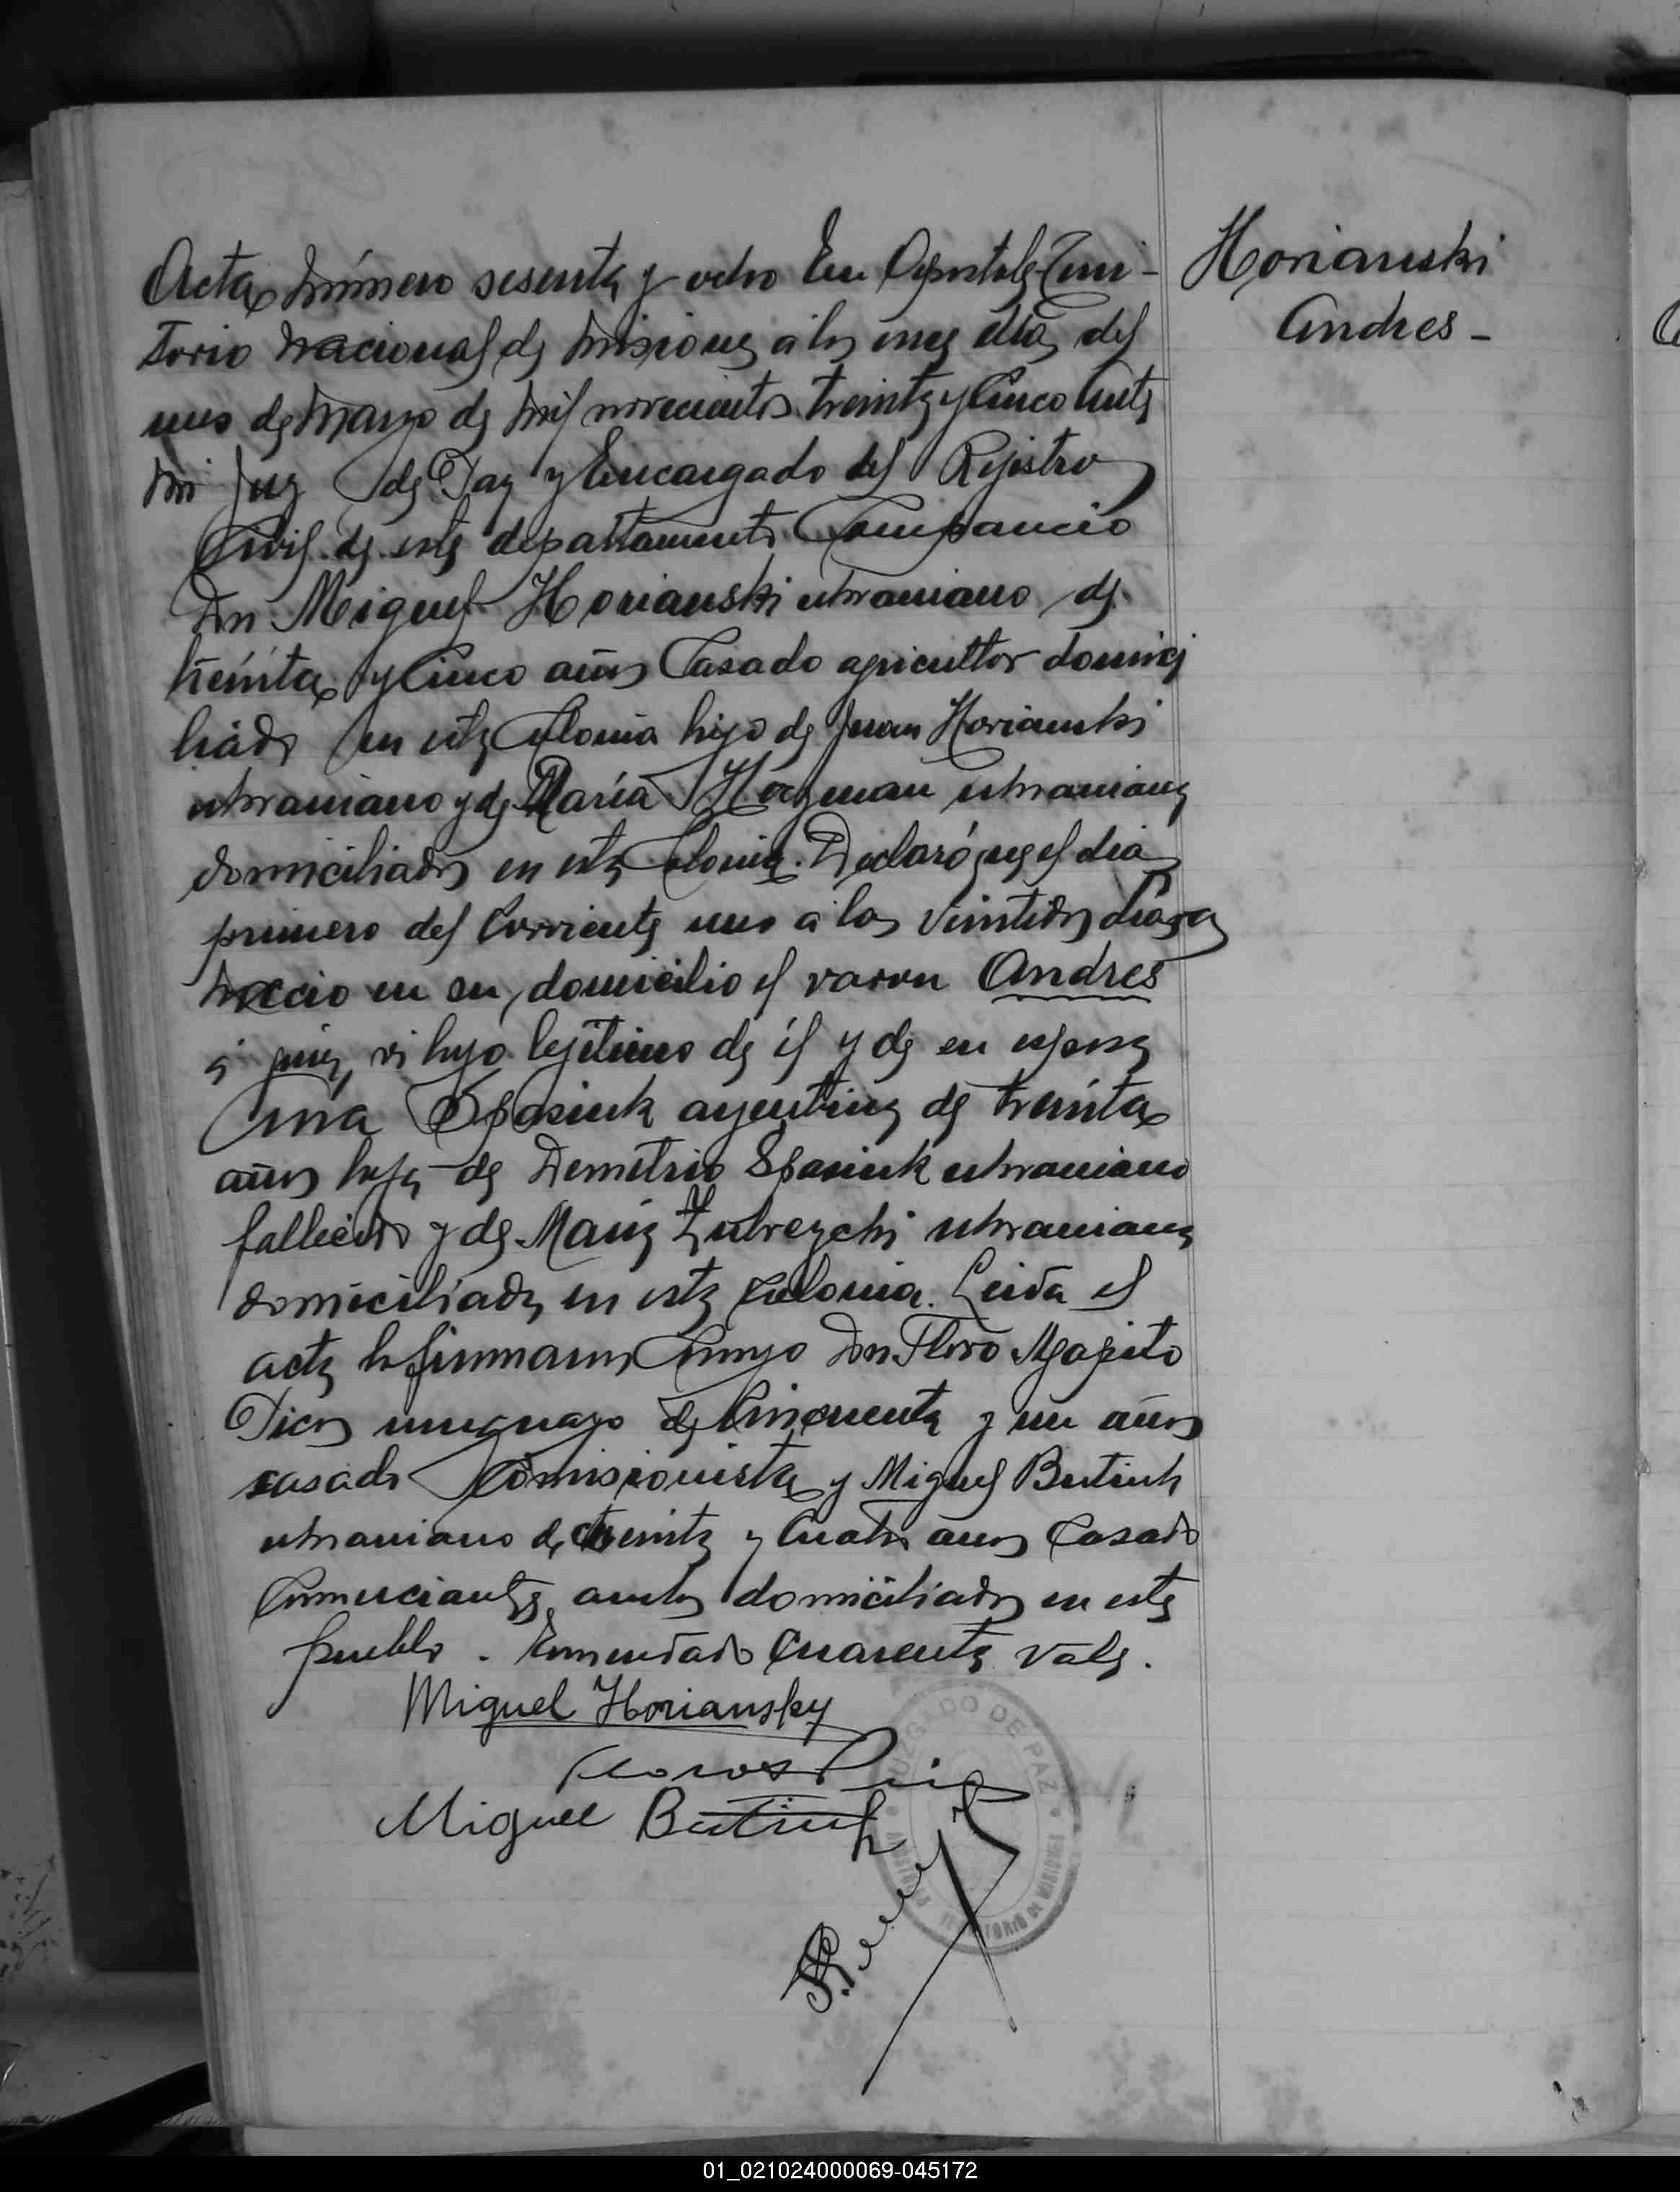 Horianski
Andres -
Acta número sesenta y ocho En Apostoles Terri-
torio Nacional de Misiones a los once dias del
mes de Mayo de mil novecientos treinta y Cinco Ante
mi Juez de Paz y Encargado del Rejistro
Civil de este departamento Compareció
Don Miguel Horianski ukraniano de
treinta y Cinco años Casado agricultor domici
liado en esta Colonia hijo de Juan Horianski
ukraniano y de María ukraniana
domiciliados en esta Colonia. Declaró que el dia
primero del Corriente mes a las veintidos
nació en su domicilio el varon Andres
a quien vi hijo lejitimo de él y de su esposa
Ana Spasiuk argentina de treinta
años hija de Demetrio Spasiuk ukraniano
fallecido y de María ukraniana
domiciliada en esta Colonia. Leida el
acta la firmaron Conmigo Don Floro Agapito
uruguayo de Cincuenta y un años
casado Comisionista y Miguel Butiuk
ukraniano de treinta y Cuatro años Casado
Comerciante, ambos domiciliados en este
pueblo. Enmendado Cuarenta Vale.
Miguel Horiansky
Miguel Butiuk
JUZGADO DE PAZ
TERRITORIO DE MISIONES
01_021024000069-045172